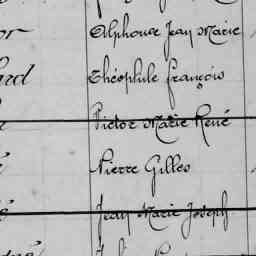 Alphonse Jean Marie
Théophile François
Victor Marie René
Pierre Gilles
Jean Marie Joseph